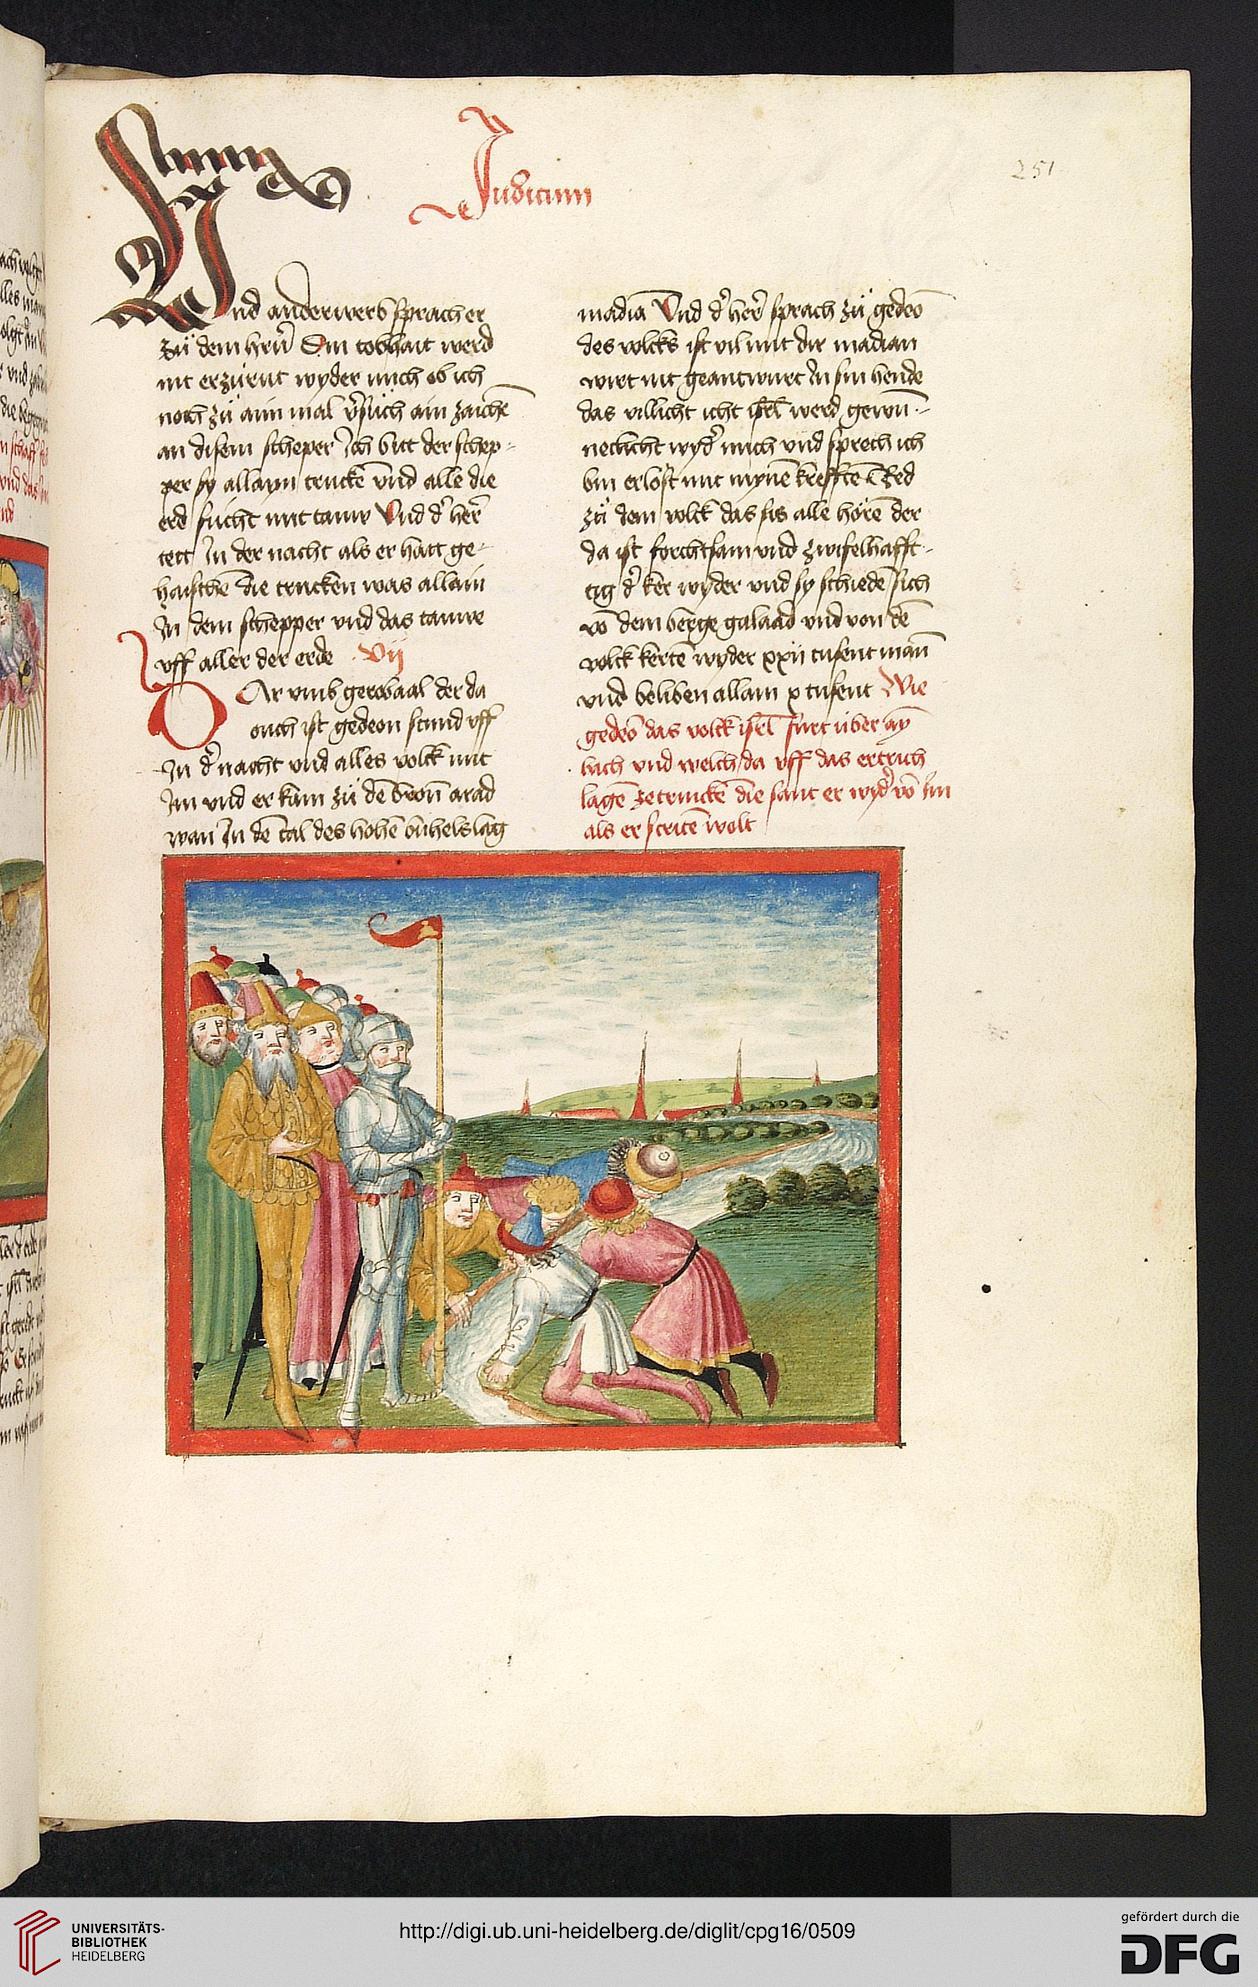 Judicum
251
Und anderwerb sprach er
zü dem hrn̄ Din tobhait werd
nit erzürnt wyder mich ob ich
noch zü aim mal v̾süch ain zaichē
an disem scheper Ich bitt der schep-
per sy allayn trucken vnd alle die
erd fücht mit tauw Vnd d̾ her̄
tett In der nacht als er hatt ge-
haischē die trucken was allain
In dem schepper vnd das tauwe
vff aller der erde Vij
Dar vmb geroboaal der da
ouch ist gedeon stund vff
In d̾ nacht vnd alles volck mit
Im vnd er kam zü dē bronn̄ arad
wan In dē tal des hohē bühels lag
madiā Vnd d̾ her̄ sprach zü gedeō
des volcks ist vil mit dir madian
wirt nit geantwurt In sin hende
das villicht icht isrl̄ werd gerün-
nēclicht wyd̾ mich vnd sprech ich
bin erlöst mit mynē krefftē Red
zü dem volck das sis alle hörē der
da ist forchtsam vnd zwifelhafft-
tig d̾ ker wyder vnd sy schiedē sich
vō dem berge galaad vnd von dē
volck kertē wyder xxij tusent man̄
vnd beliben allain x tusent Wie
gedeō das volck isrl̄ fürt über ay̅
bach vnd welch da vff das ertrich
lagē ze trinckē die sant er wyd̾ vō Im
als er stritē wolt
UNIVERSITÄTS-
BIBLIOTHEK
HEIDELBERG
http://digi.ub.uni-heidelberg.de/diglit/cpg16/0509
gefördert durch die
DFG